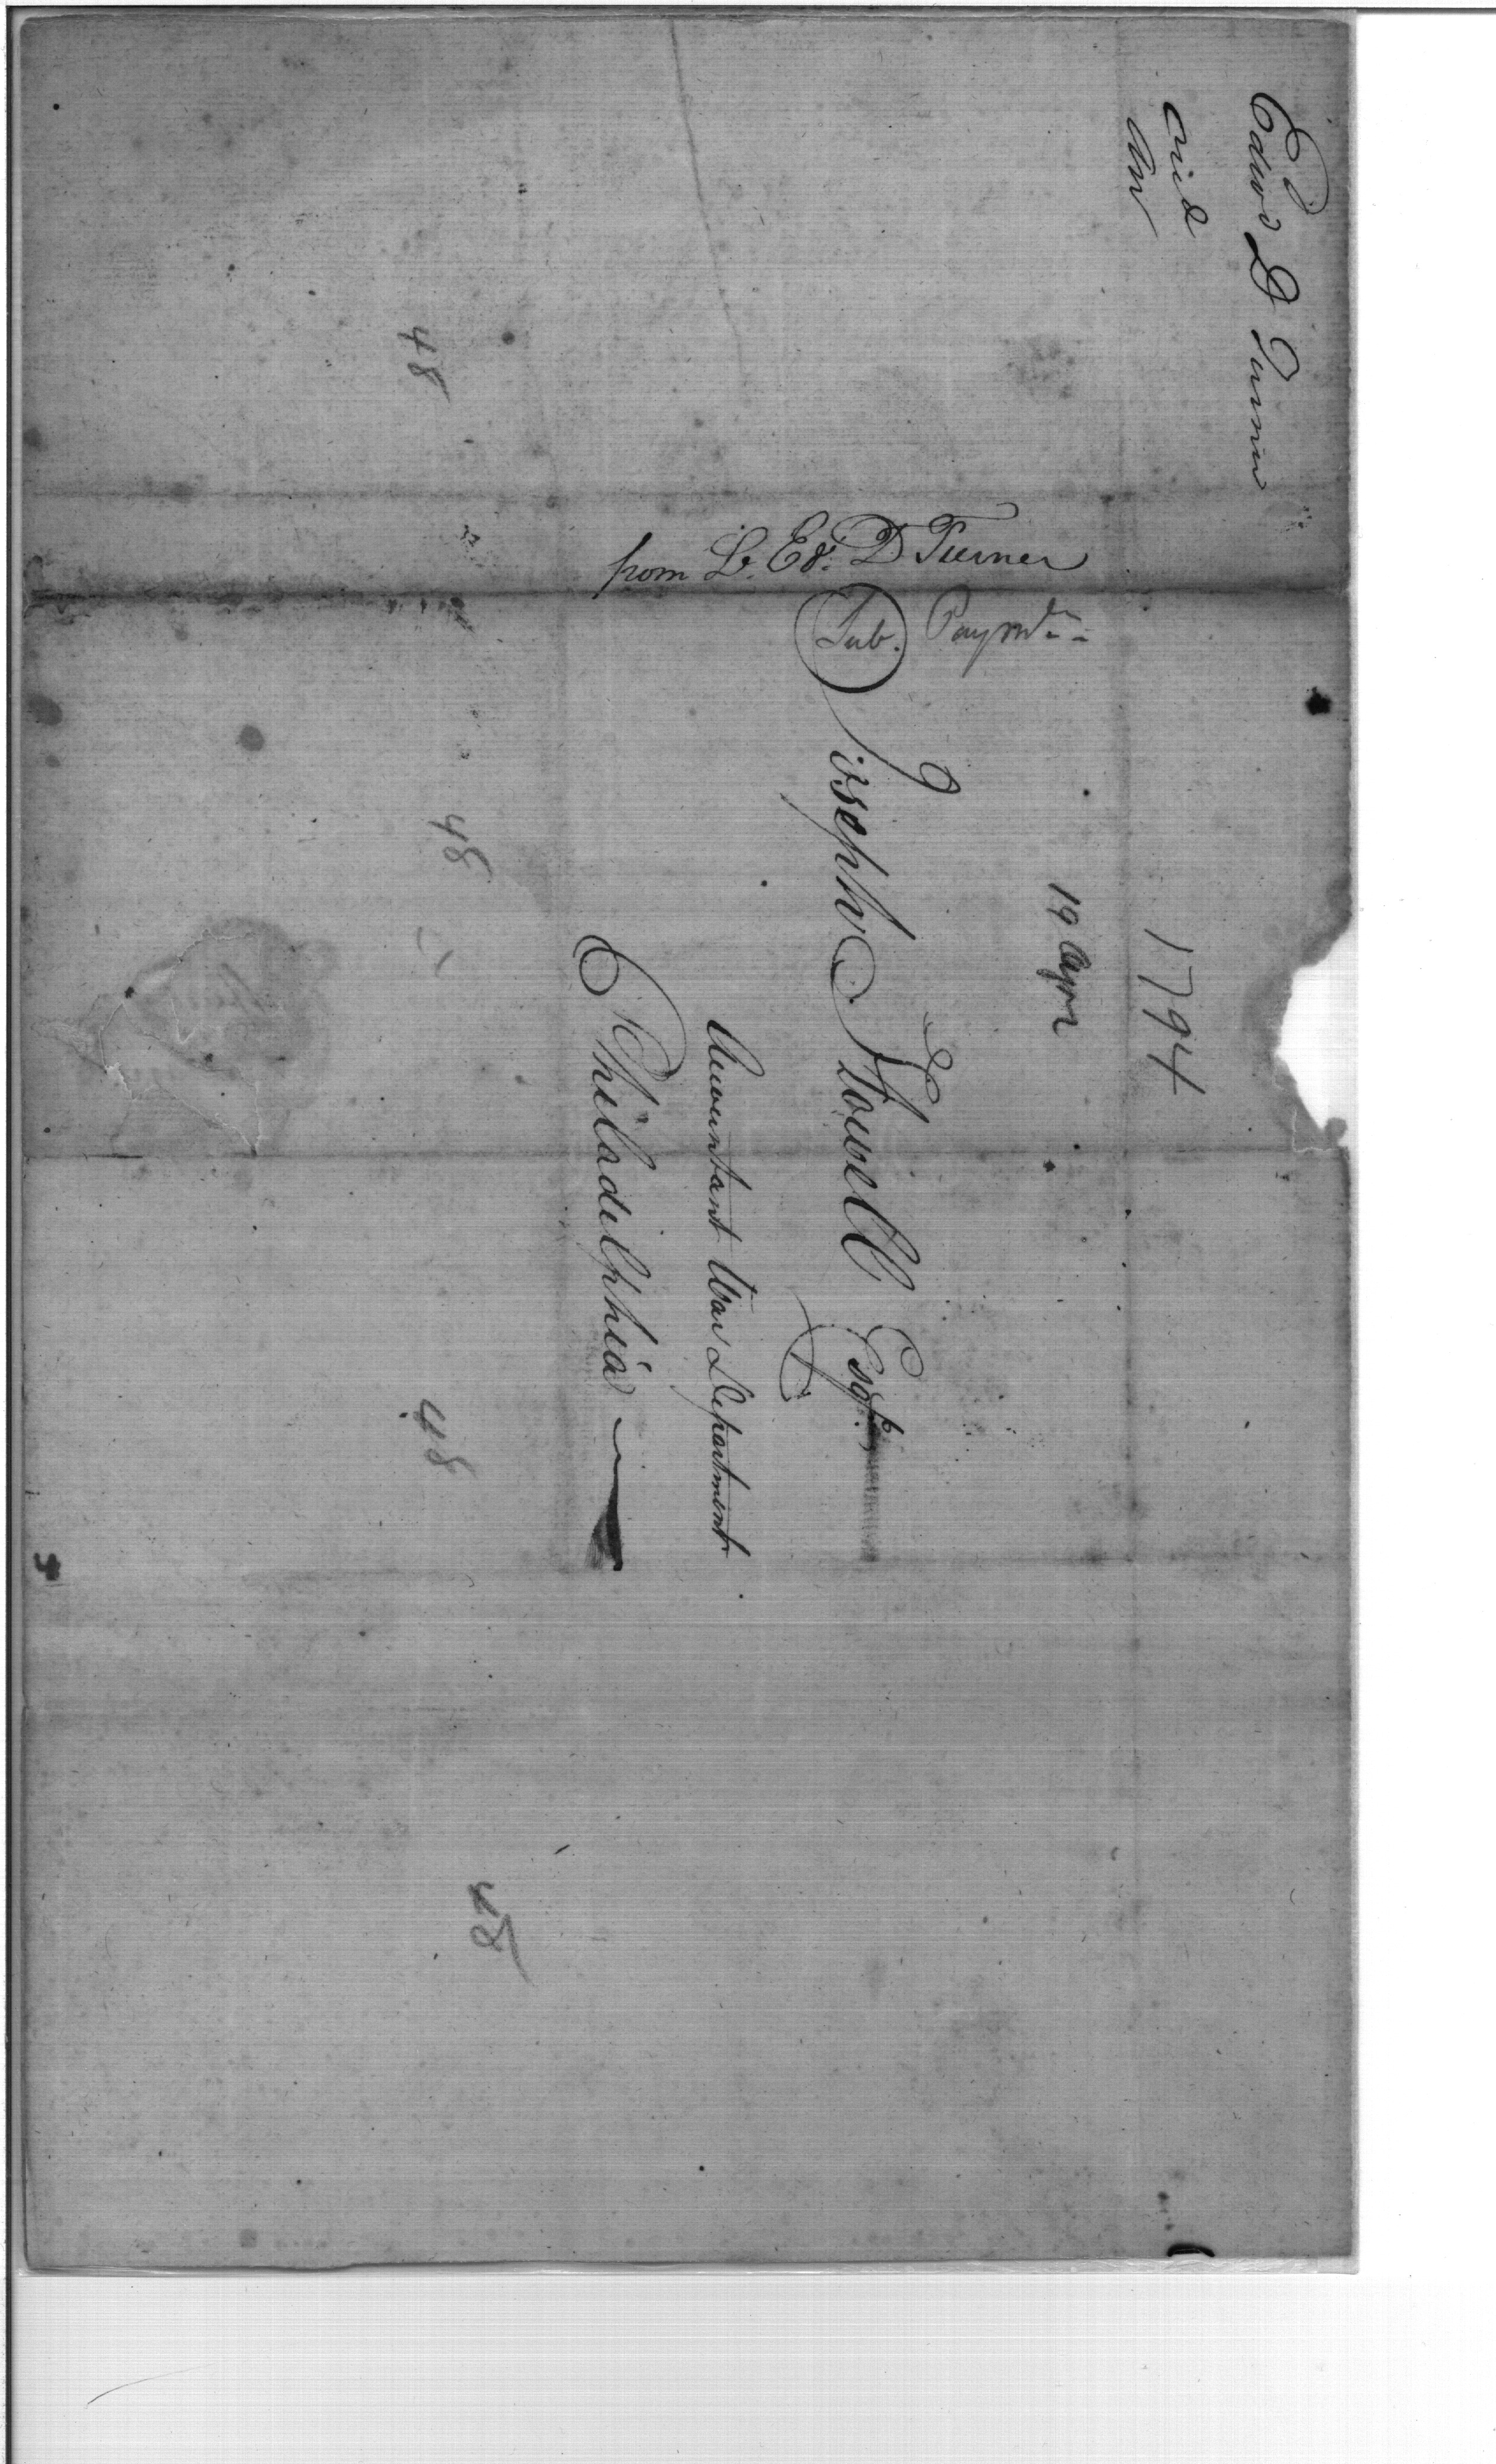 Edwd D Turner
and
from Lt. Ed: D Turner
Sub. Paymr.
1794
19 Apr
Joseph Howell Esqr.
Accountant War Department
Philadelphia
48
48
48
48